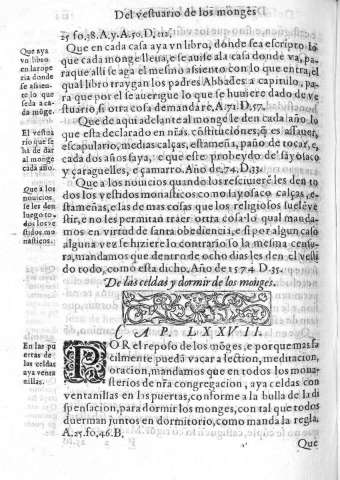 Del vestuario de los monges
25 fo. 38. A. y. A. 50. D. 112.
Que aya
vn libro
en la rope
ria donde
se assien-
te lo que
se da a ca-
da mõge.
Que en cada casa aya vn libro, donde sea escripto lo
que cada monge lleua, e se auise ala casa donde va, pa-
ra que alli se aga el mesmo assiento con lo que entra, el
qual libro traygan los padres Abbades a capitulo, pa-
ra que por el se auerigue lo que se huuiere dado de ve
stuario, si otra cosa demandarẽ, A. 71. D. 57.
El vestua
rio que se
ha de dar
al monge
cada año.
Que de aqui adelante al monge le den cada año lo
que esta declarado en nr̃as cõstituciones, q̃ es assauer,
escapulario, medias calças, estameña, paño de tocar, e,
cada dos años saya, e que este probeydo de sayo saco
y çaraguelles, e çamarro. Año de, 74. D. 33.
Que a los
nouicios
se les den
luego to-
dos los ve
stidos mo
nasticos.
Que a los nouicios quando les resciuierẽ les den to
dos los vestidos monasticos como sayo saco calças, e-
stameñas, e las demas cosas que los religiosos suelẽ ve
stir, e no les permitan traer ortra cosa lo qual manda-
mos en virtud de sancta obediencia, e si por algun caso
alguna vez se hiziere lo contrario so la mesma censu-
ra, mandamos que dentro de ocho dias les den el vesti
do todo, como esta dicho, Año de 1574 D. 35.
De las celdas y dormir de los monges.
CAP. LXXVII.
En las pu
ertas de
las celdas
aya venta
nillas.
POR el reposo de los mõges, e porque mas fa
cilmente puedã vacar a lection, meditacion,
oracion, mandamos que en todos los mona-
sterios de nr̃a congregacion, aya celdas con
ventanillas en las puertas, conforme a la bulla de la di
spensacion, para dormir los monges, con tal que todos
duerman juntos en dormitorio, como manda la regla.
A. 25. fo, 46. B.
Que